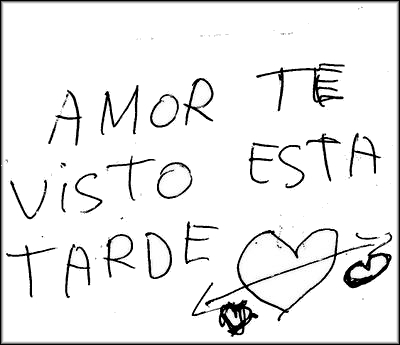 AMOR TE
VISTO ESTA
TARDE